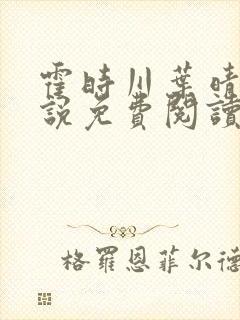 霍時川葉晴
説免費閱讀
格羅恩菲尔德